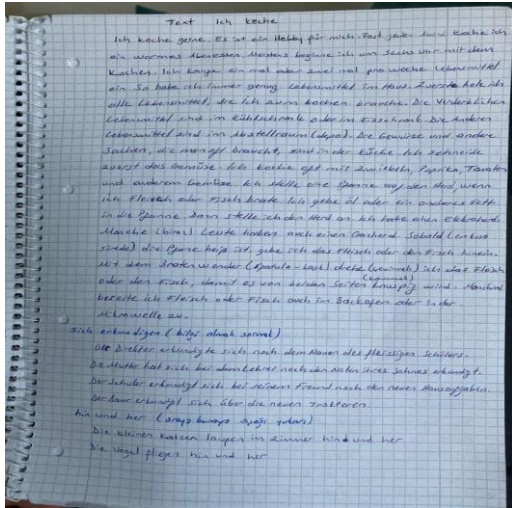 Text Ich koche
Ich koche gerne. Es ist ein Hobby für mich. Fast jeden koche ich
ein warmes Abendessen. Meistens beginne ich um sechs Uhr mit dem
Kochen. Ich kaufe ein mal oder zwei mal pro woche Lebensmittel
ein. So habe ich immer genug Lebensmittel im Haus. Zuerst hole ich
alle Lebensmittel, die ich zum kochen brauche. Die Verderblichen
Lebensmittel sind im Kühlschrank oder im Eisschrank. Die Anderen
Lebensmittel sind im Abstellraum (depo). Die Gewürze und andere
Sachen, die man oft braucht, sind in der Küche. Ich schneide
zuerst das Gemüse. Ich koche oft mit Zwiebeln, Paprika, Tomaten
und anderem Gemüse. Ich stelle eine Pfanne auf den Herd, wenn
ich Fleisch oder Fisch brate. Ich gebe öl oder ein anderes Fett
in die Pfanne. Dann stelle ich den Herd an. Ich habe einen Elektroherd.
Manche (bırai) Leute haben auch einen Gasherd. Sobald (en kısa
sürede) die heiß ist, gebe ich das Fleisch oder den Fisch hinein.
Mit dem Bratenwender (Spatula - kaşık) drehe (çevirmek) ich das Fleisch
oder den Fisch, damit es von beiden Seiten knusprig wird. Manchmal
bereite ich Fleisch oder Fisch auch im Backofen oder in der
Mikrowelle zu.
sich erkundigen (bilgi almak sormak)
Der Direktor erkundigte sich nach dem Namen des fleissigen Schülers.
Die Mutter hat sich bei dem Lehrer nach den Noten ihres Sohnes erkundigt.
Der Schüler erkundigt sich bei seinem Freund nach den neuen Hausaufgaben.
Der Bauer erkundigt sich über die neuen Traktoren.
hin und her (oraya buraya aşağı yukarı)
Die kleinen Katzen laufen im Zimmer hin und her
Die Vögel fliegen hin und her